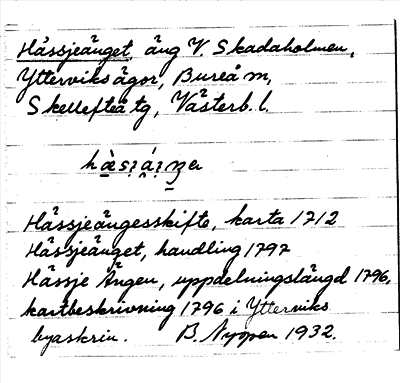 Hässjeänget, äng V. Skadaholmen,
Ytterviks ägor, Bureå sn,
Skellefteå tg, Västerb. l.
Hässjeängesskifte, karta 1712
Hässjeänget, handling 1797
Hässje Ängen, uppdelningslängd 1796,
kartbeskrivning 1796 i Ytterviks
byaskrin. B. Nyman 1932.